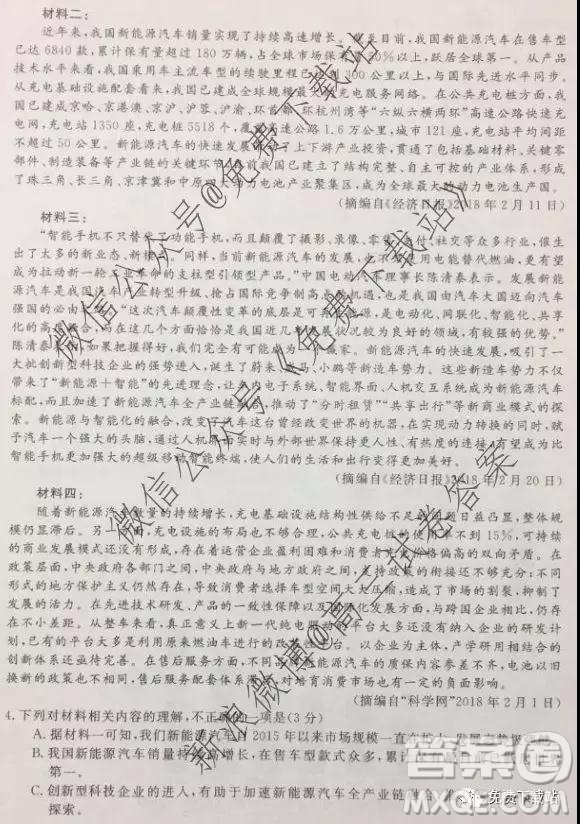 材料二：
近年来，我国新能源汽车销量实现了持续高速增长。 至目前，我国新能源汽车在售车型
已达6840款，累计保有量超过180万辆，占全球市场保有 50%以上，跃居全球第一。从产品
技术水平来看，我国乘用车主流车型的续驶里程已 到300公里以上，与国际先进水平同步。
从充电基础设施配套看来，我国已建成全球规模最 充电服务网络。在公共充电桩方面，我
国已建成京哈、京港澳、京沪、沪蓉、沪渝、环首都、环杭州湾等“六纵六横两环”高速公路快速充
电网，充电站1350座，充电桩5518个，覆 速公路1.6万公里，城市121座，充电站平均间距
不超过50公里。新能源汽车的快速发展， 上下游产业投资，贯通了包括基础材料、关键零
部件、制造装备等产业链的关键环节 前我国已建立了结构完整、自主可控的产业体系，形成
了珠三角、长三角、京津冀和中原 动力电池产业聚集区，成为全球最大的动力电池生产国。
（摘编自《经济日报》2018年2月11日）
材料三：
“智能手机不只替代了功能手机，而且颠覆了摄影、录像、零售、 付、社交等众多行业，催生
出了太多的新业态、新模 同样，当前新能源汽车的发展， 使用电能替代燃油，更有望
成为拉动新一轮 业革命的支柱型引领型产品。”中国电动 人 理事长陈清泰表示。发展新
能源汽车是我国汽车产业转型升级、抢占国际竞争制高点 机遇，也是我国由汽车大国迈向汽车
强国的必由 “这次汽车颠覆性变革的底层是可 ，是电动化、网联化、智能化、共享
化的高 合，而在这几个方面恰恰是我国近几 展状况较为良好的领域，有较强的优势。”
陈清泰 如果把握得好，我们完全有可能成为 赢家。新能源汽车的快速发展，吸引了一
大批创新型科技企业的强势进入，诞生了蔚来 马、小鹏等新造车势力。这些新造车势力不仅
带来了“新能源＋智能”的先进理念，让 电子系统、智能界面、人机交互系统成为新能源汽车
标配，而且加速了新能源全产业链 ，推动了“分时租赁”“共享出行”等新商业模式的探
索。新能源与智能化的融合，改变 汽车这台曾经改变世界的机器，在实现动力转换的同时，赋
予汽车一个强大的头脑，通过人机 实时与外部世界保持更人性、有热度的连接， 有望成为比
智能手机更加强大的超级移动智能终端，使人们的生活和出行变得更加美好。
（摘编自《经济日报》2018年2月20日）
材料四：
随着新能源汽车数量的持续增长，充电基础设施结构性供给不足 问题日益凸显，整体规
模仍显滞后。另一方面，充电设施的布局也不够合理，公共充电桩 使用 不到15%，可持续
的商业发展模式还没有形成，存在着运营企业盈利困难和消费者充电价格偏高的双向矛盾。在
政策层面，中央政府各部门之间，中央政府与地方政府之间， 支持政策的衔接还不够充分；不同
形式的地方保护主义仍然存在，导致消费者选择车型空间大大压缩，造成了市场的割裂，抑制了
发展的活力。在先进技术研发、产品质量性能、生产成本控制、品牌影响力方面，与跨国企业相比，仍存
在不小差距。从整车来看，真正意义上新一代纯电驱动平台大多还没有纳入企业的研发计
划，已有的平台大多是利用原来燃油车进行的改善性平台。以企业为主体，产学研用相结合的
创新体系还亟待完善。在售后服务方面，不同新能源汽车的质保内容参差不齐，电池以旧
换新的售后服务问题仍未得到有效解决，对培育消费市场也有一定的负面影响。
（摘编自“科学网”2018年2月1日）
4.下列对材料相关内容的理解，不正确的一项是(3分)
A.据材料一可知，我们新能源汽车自2015年以来市场规模一直在扩大
B.我国新能源汽车销量持续高速增长，在售车型款式众多，累计保有
第一。
C.创新型科技企业的进入，有助于加速新能源汽车全产业链
探索。
微信公众号@免费下载站
微信公众号《免费下载站》
新浪微博@高三试卷答案
答案圈
免费下载站